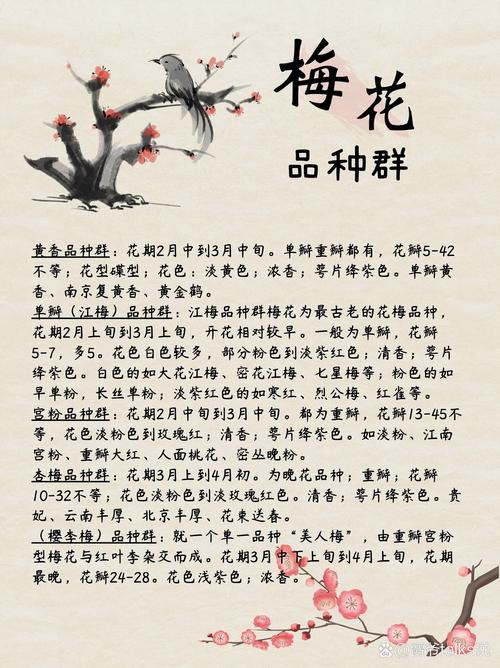 梅花
品种群
黄香品种群：花期2月中到3月中旬。单瓣重瓣都有，花瓣5-42
不等；花型碟型；花色：淡黄色；浓香；萼片绛紫色。单瓣黄
香、南京复黄香、黄金鹤。
单瓣（江梅）品种群：江梅品种群梅花为最古老的花梅品种，
花期2月上旬到3月上旬，开花相对较早。一般为单瓣，花瓣
5-7，多5。花色白色较多，部分粉色到淡紫红色；清香；萼片
绛紫色。白色的如大花江梅、密花江梅、七星梅等；粉色的如
早单粉，长丝单粉；淡紫红色的如寒红、烈公梅、红雀等。
宫粉品种群：花期2月中旬到3月中旬。都为重瓣，花瓣13-45不
等，花色淡粉色到玫瑰红；清香；萼片绛紫色。如淡粉、江南
宫粉、重瓣大红、人面桃花、密丛晚粉。
杏梅品种群：花期3月上到4月初。为晚花品种；重瓣；花瓣
10-32不等；花色淡粉色到淡玫瑰红色。清香；萼片绛紫色。贵
妃、云南丰厚、北京丰厚、花束送春。
（樱李梅）品种群：就一个单一品种“美人梅”，由重瓣宫粉
型梅花与红叶李杂交而成。花期3月中下上旬到4月上旬，花期
最晚，花瓣24-28。花色浅紫色；浓香。